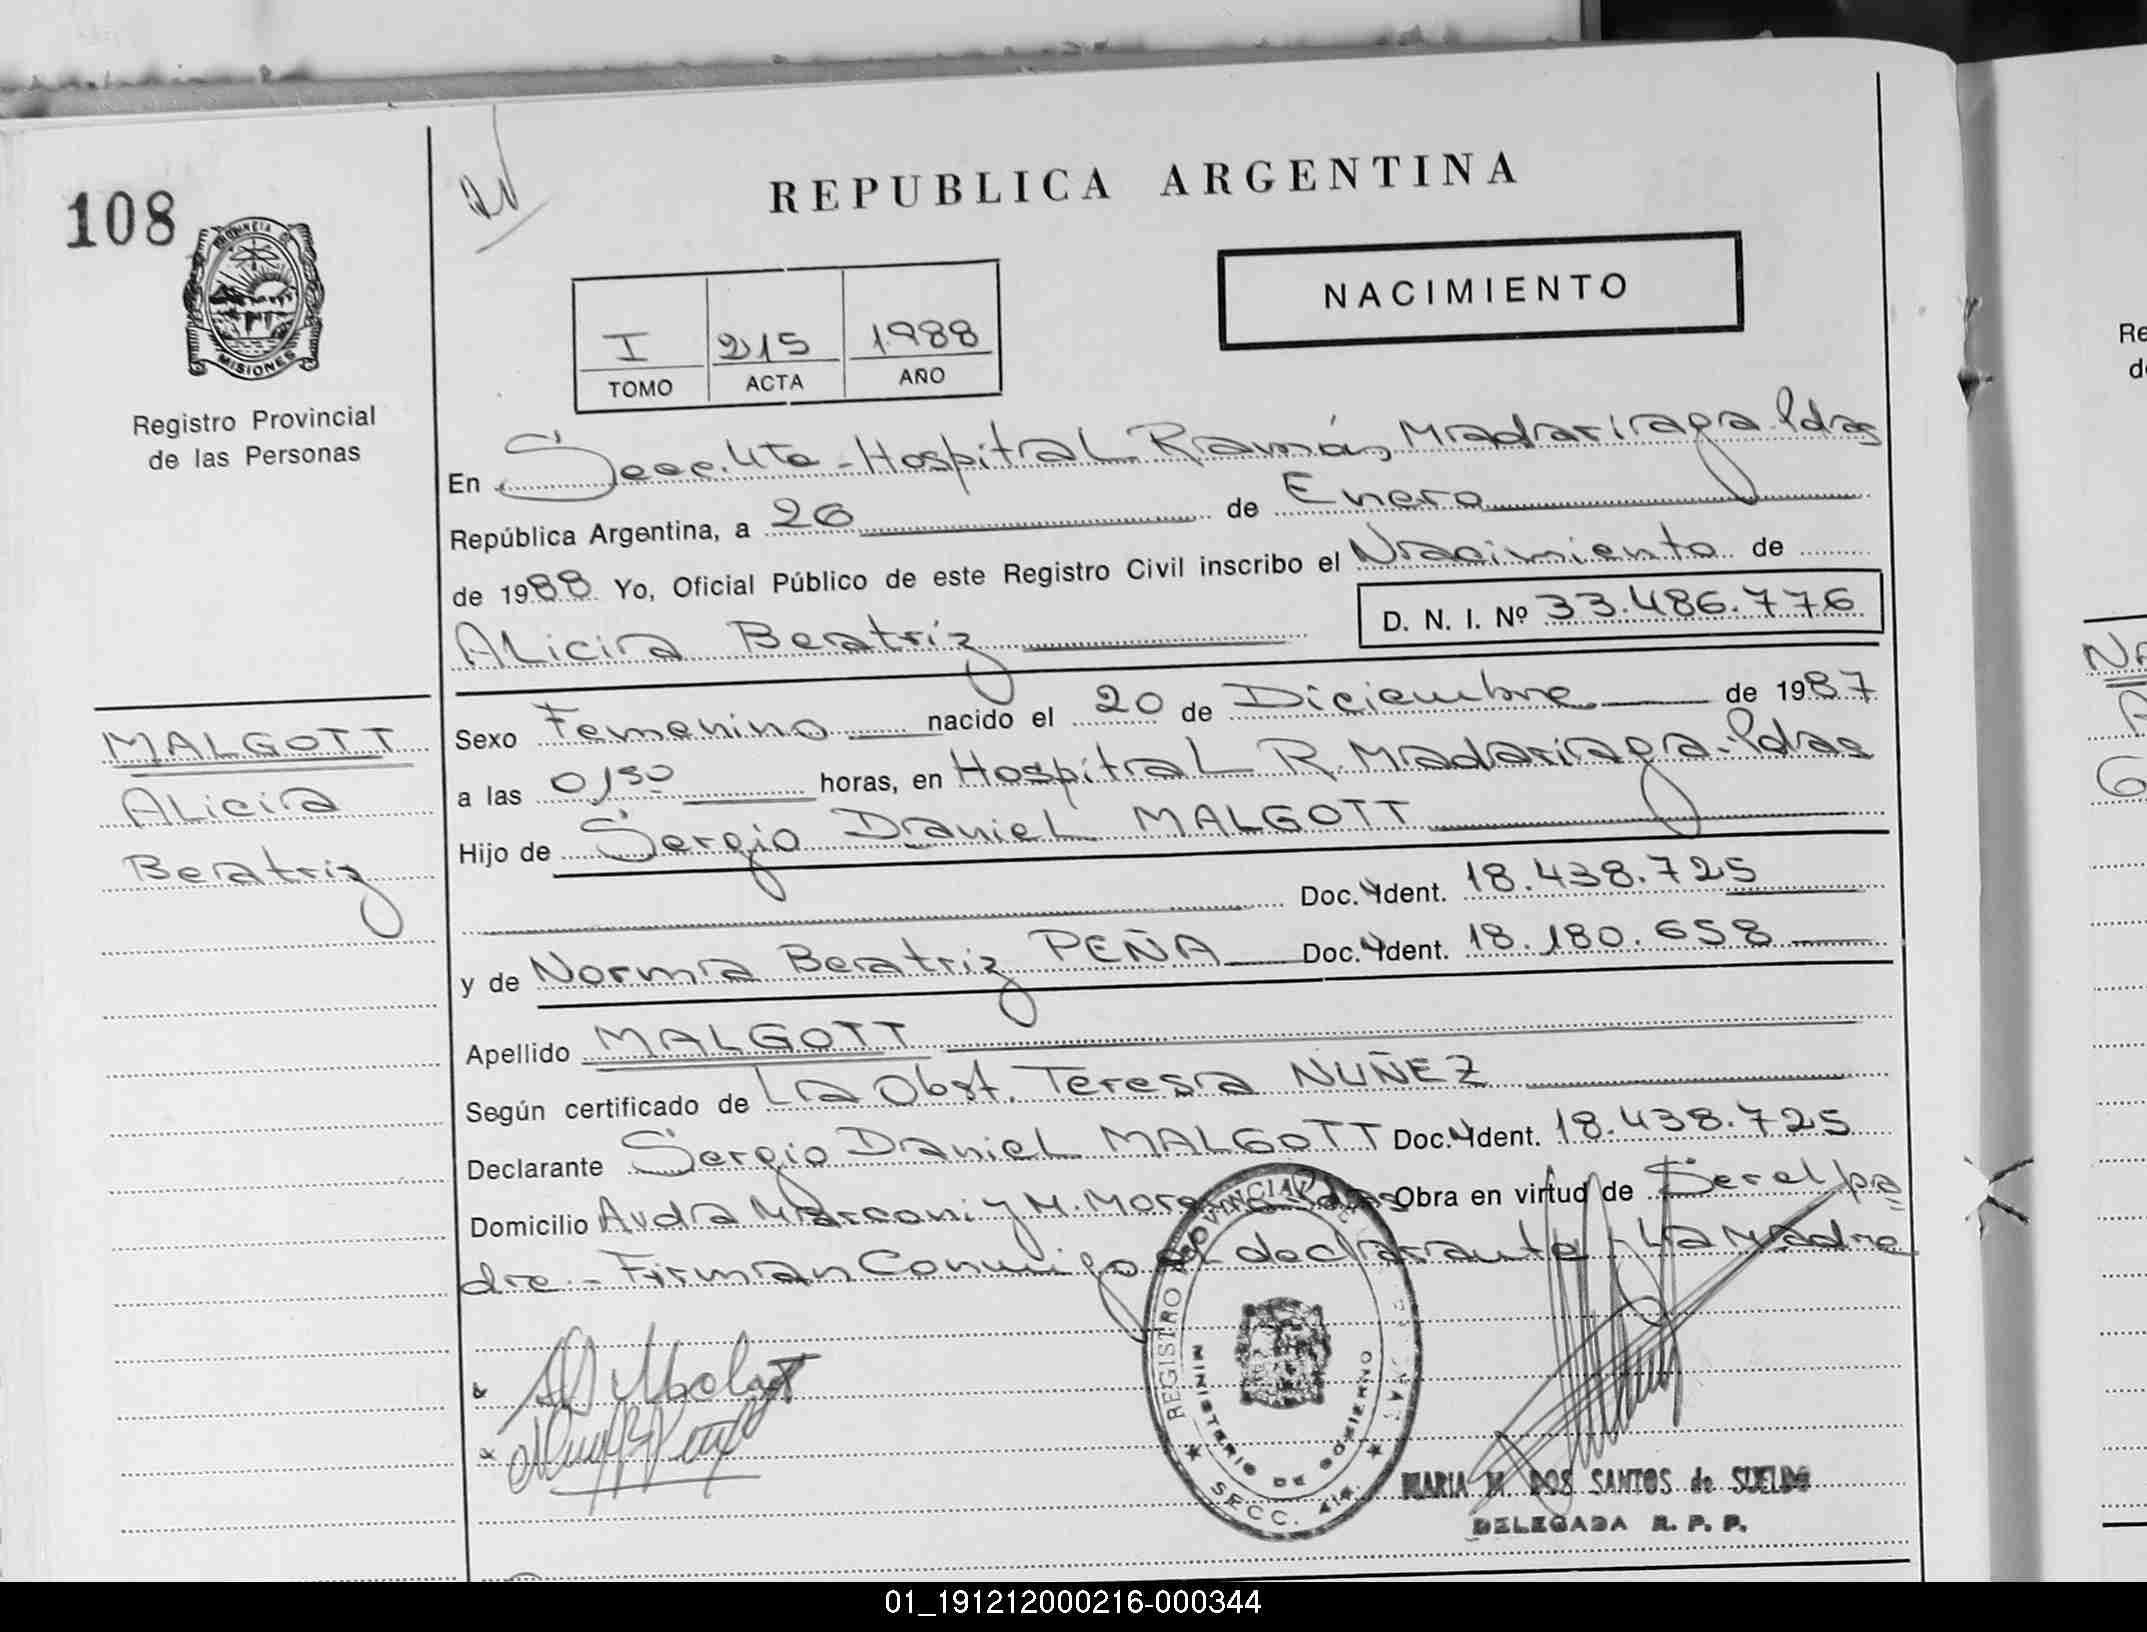 108
REPUBLICA ARGENTINA
NACIMIENTO
PROVINCIA DE
MISIONES
Registro Provincial
de las Personas
I 215 1988
TOMO ACTA AÑO
En Secc. 4ta - Hospital Ramón Madariaga. Pdas
República Argentina, a 26 de Enero
de 1988 Yo, Oficial Público de este Registro Civil inscribo el Nacimiento de
Alicia Beatríz
D. N. I. Nº 33.486.776
Sexo Femenino nacido el 20 de Diciembre de 1987
a las 0,50 horas, en Hospital R. Madariaga - Pdas
Hijo de Sergio Daniel MALGOTT
Doc. Ident. 18.438.725
y de Norma Beatriz PEÑA Doc. Ident. 18.180.658
Apellido MALGOTT
Según certificado de La Obst. Teresa NUÑEZ
Declarante Sergio Daniel MALGOTT Doc. Ident. 18.438.725
Domicilio Avda Marconi y M. Obra en virtud de Ser el pa
dre - Firman Conmigo el declarante y La Madre
MALGOTT
Alicia
Beatriz
REGISTRO PROVINCIAL
MINISTERIO DE GOBIERNO
SECC. 4ta.
MARIA M. DOS SANTOS de SUELDO
DELEGADA R. P. P.
Re
de
NA
A
G
01_191212000216-000344